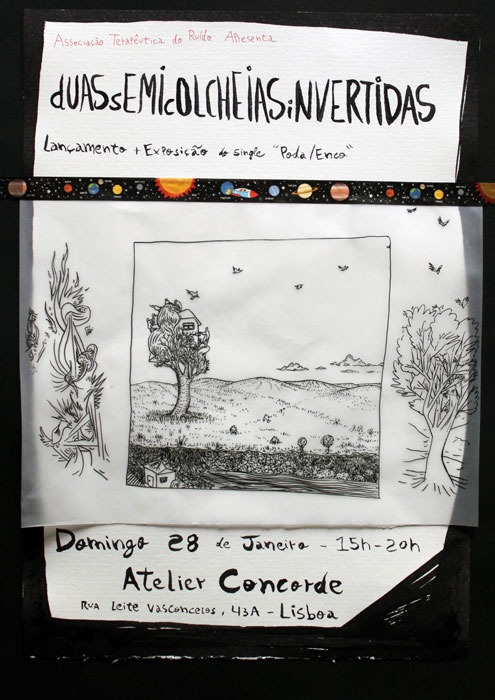 Associação Terapêutica do Ruído Apresenta
dUASsEMicOLCHEiASiNVERTiDAS
Lançamento + Exposição do single "Poda/Enco"
Domingo 28 de Janeiro - 15h-20h
Atelier Concorde
Rua Leite Vasconcelos, 43A - Lisboa